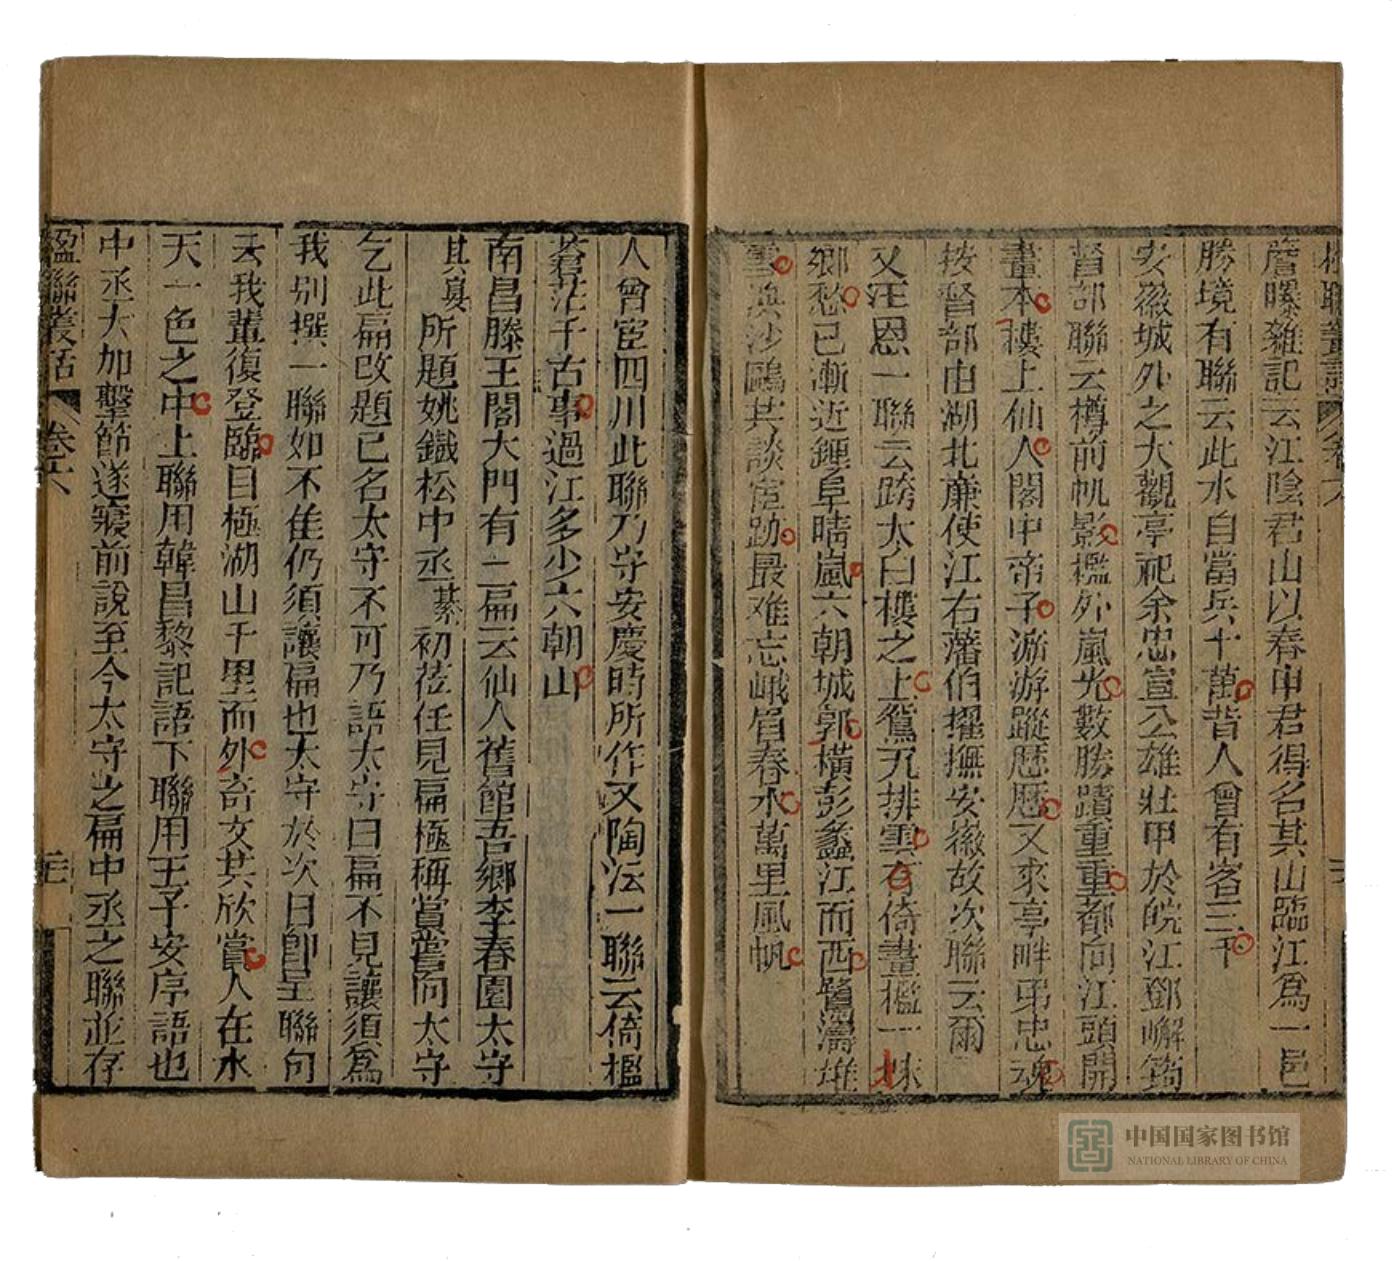 楹聯叢話 卷六
詹曝雜記云江陰君山以春申君得名其山臨江爲一邑
勝境有聯云此水自當兵十萬昔人曾有客三千
安徽城外之大觀亭祀余忠宣公雄壯甲於皖江鄧嶰筠
督部聯云樽前帆影檻外嵐光數勝蹟重重都向江頭開
畫本樓上仙人閣中帝子溯游蹤歷歷又來亭畔弔忠魂
按督部由湖北廉使江右藩伯擢撫安徽故次聯云爾
又汪恩一聯云跨太白樓之上鴛瓦排雲有倚畫檻一株
鄉愁已漸近鍾阜晴嵐六朝城郭橫彭蠡江而西鷺濤雄
雪與沙鷗共談宦跡最难忘峨眉春水萬里風帆
人曾宦四川此聯乃守安慶時所作又陶澐一聯云倚檻
蒼茫千古事過江多少六朝山
南昌滕王閣大門有一扁云仙人舊館吾鄉李春園太守
其真所題姚鐵松中丞棻初莅任見扁極稱賞嘗向太守
乞此扁改題已名太守不可乃語太守曰扁不見讓須爲
我別撰一聯如不佳仍須讓扁也太守於次日卽呈聯句
云我輩復登臨目極湖山千里而外奇文共欣賞人在水
天一色之中上聯用韓昌黎記語下聯用王子安序語也
中丞大加擊節遂寢前說至今太守之扁中丞之聯並存
楹聯叢話 卷六
中国国家图书馆
NATIONAL LIBRARY OF CHINA